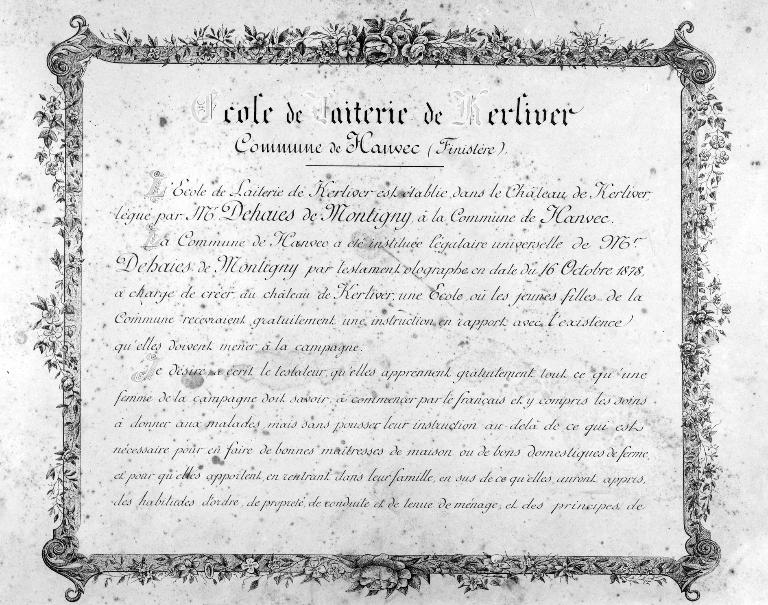 Ecole de Laiterie de Kerliver
Commune de Hanvec (Finistère).
L'Ecole de Laiterie de Kerliver est établie dans le Château de Kerliver
légué par Mr Dehaies de Montigny, à la Commune de Hanvec.
La Commune de Hanvec a été instituée légataire universelle de Mr
Dehaies de Montigny par testament olographe en date du 16 Octobre 1878,
à charge de créer, au château de Kerliver, une Ecole où les jeunes filles de la
Commune recevraient gratuitement une instruction en rapport avec l'existence
qu'elles doivent mener à la campagne.
Je désire, a écrit le testateur, qu'elles apprennent gratuitement tout ce qu'une
femme de la campagne doit savoir, à commencer par le français et y compris les soins
à donner aux malades mais sans pousser leur instruction au-delà de ce qui est
nécessaire pour en faire de bonnes maîtresses de maison ou de bons domestiques de ferme,
et pour qu'elles apportent, en rentrant dans leur famille, en sus de ce qu'elles auront appris,
des habitudes d'ordre, de propreté, de conduite et de tenue de ménage, et des principes de